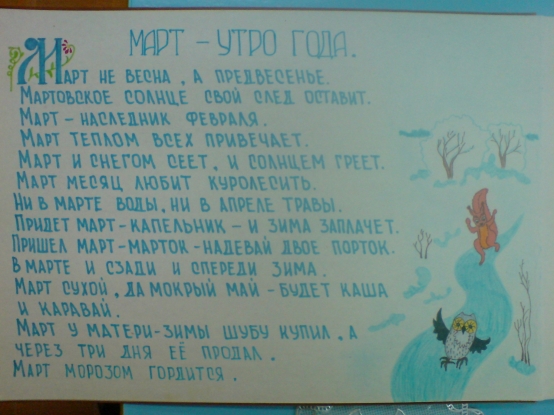 МАРТ – УТРО ГОДА.
МАРТ НЕ ВЕСНА, А ПРЕДВЕСЕНЬЕ.
МАРТОВСКОЕ СОЛНЦЕ СВОЙ СЛЕД ОСТАВИТ.
МАРТ – НАСЛЕДНИК ФЕВРАЛЯ.
МАРТ ТЕПЛОМ ВСЕХ ПРИВЕЧАЕТ.
МАРТ И СНЕГОМ СЕЕТ, И СОЛНЦЕМ ГРЕЕТ.
МАРТ МЕСЯЦ ЛЮБИТ КУРОЛЕСИТЬ.
НИ В МАРТЕ ВОДЫ, НИ В АПРЕЛЕ ТРАВЫ.
ПРИДЕТ МАРТ-КАПЕЛЬНИК – И ЗИМА ЗАПЛАЧЕТ.
ПРИШЕЛ МАРТ-МАРТОК - НАДЕВАЙ ДВОЕ ПОРТОК.
В МАРТЕ И СЗАДИ И СПЕРЕДИ ЗИМА.
МАРТ СУХОЙ, ДА МОКРЫЙ МАЙ – БУДЕТ КАША
И КАРАВАЙ.
МАРТ У МАТЕРИ-ЗИМЫ ШУБУ КУПИЛ, А
ЧЕРЕЗ ТРИ ДНЯ ЕЁ ПРОДАЛ.
МАРТ МОРОЗОМ ГОРДИТСЯ.